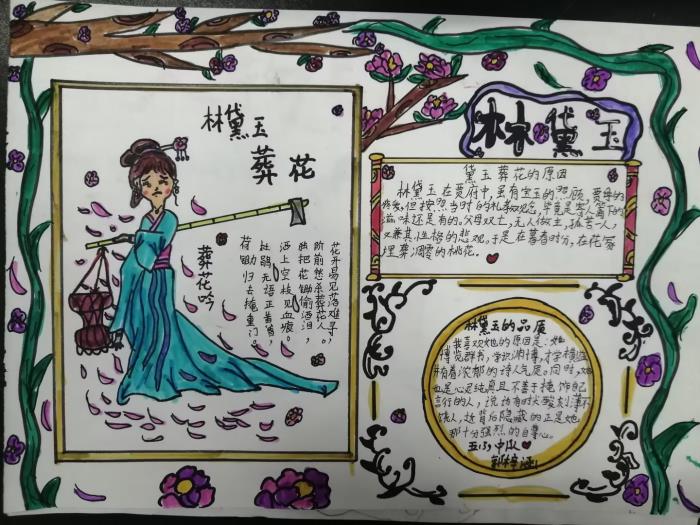 林黛玉
葬花
葬花吟
花开易见落难寻。
阶前愁杀葬花人。
独把花锄偷洒泪，
洒上空枝见血痕。
杜鹃无语正黄昏，
荷锄归去掩重门。
林黛玉
黛玉葬花的原因
林黛玉在贾府中，虽有宝玉的照顾，贾母的
疼爱，但按照当时的礼教观念，毕竟是寄人篱下的
滋味还是有的。父母双亡，无人做主，孤苦一人，
又兼其性格的悲观。于是在暮春时分，在花冢
埋葬凋零的桃花。
林黛玉的品质
我喜欢她的原因是：她
博览群书，学识渊博，才学横溢
并有着浓郁的诗人气质。同时，她
也是心灵纯真且不善于掩饰自己
言行的人，说话有时尖酸刻薄不
饶人，这背后隐藏的正是她
那十分强烈的自尊心。
五(5)中队